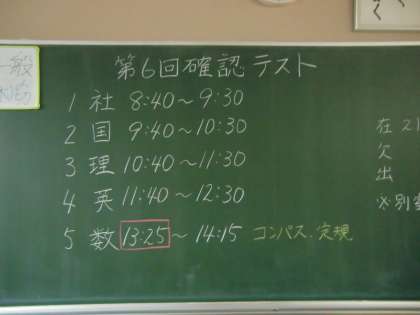 第6回確認テスト
1 社 8:40～9:30
2 国 9:40～10:30
3 理 10:40～11:30
4 英 11:40～12:30
5 数 13:25～14:15 コンパス、定規
一般
在
欠
出
※別
く